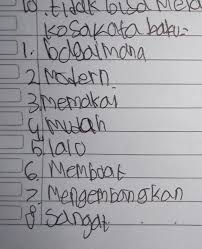 10. tidak bisa
kosakata baku:
1. bagaimana
2 Modern
3. Memakai
4 Mudah
5 lalo
6. Memboat
7. Mengembangkan
8. Sangat